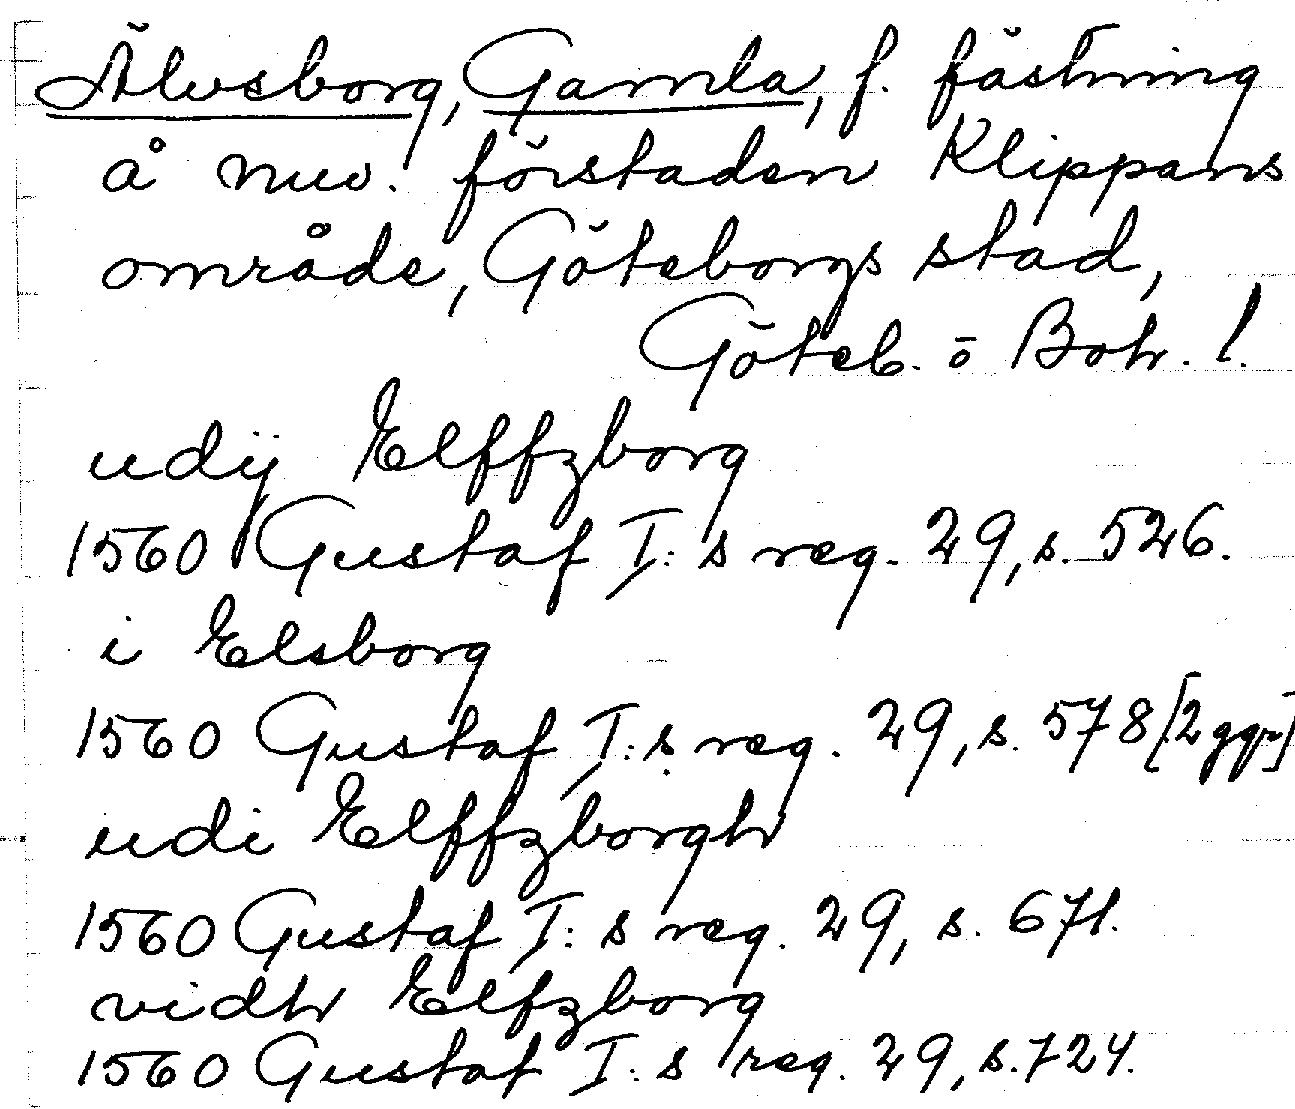 Älvsborg, Gamla, f. fästning
å nuv. förstaden Klippans
område, Göteborgs stad,
Göteb. o Boh. l.
udij Elffzborg
1560 Gustaf I:s reg. 29, s. 526.
i Elsborg
1560 Gustaf I:s reg. 29, s. 578 [2 ggr]
udi Elffzborgh
1560 Gustaf I:s reg. 29, s. 671.
vidh Elfzborg
1560 Gustaf I:s reg. 29, s. 724.